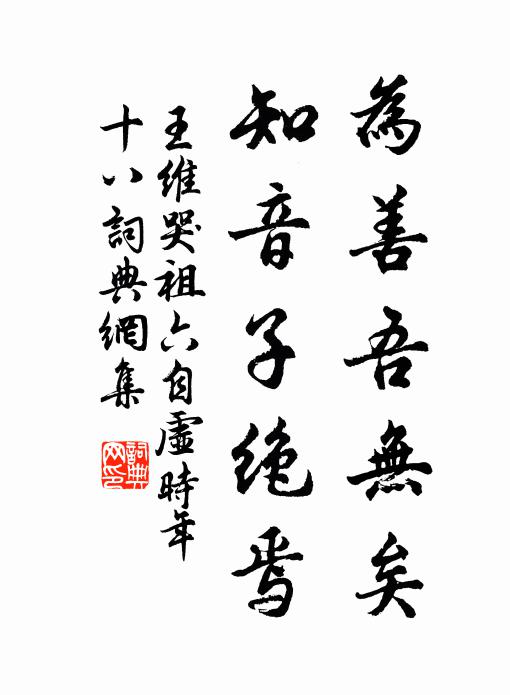 為善吾無矣
知音子絶焉
王維哭祖六自虛時年
十八詞典網集
詞典
网印